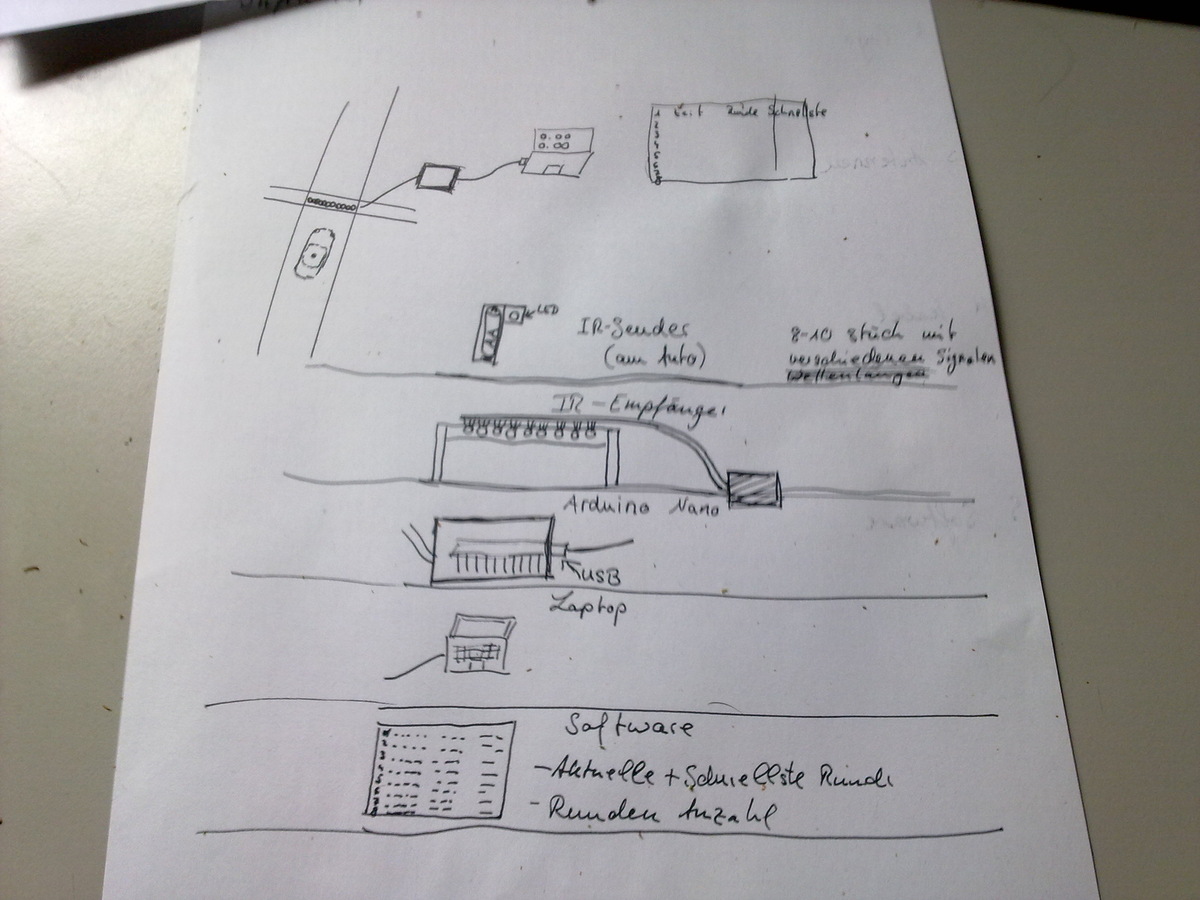 1 Zeit Runde Schnellste
2
3
4
5
6
LED
IR-Sender
(am Auto)
8-10 Stück mit
verschiedenen Signalen
Wellenlängen
IR-Empfänger
Arduino Nano
USB
Laptop
Software
-Aktuelle + Schnellste Runde
- Runden Anzahl